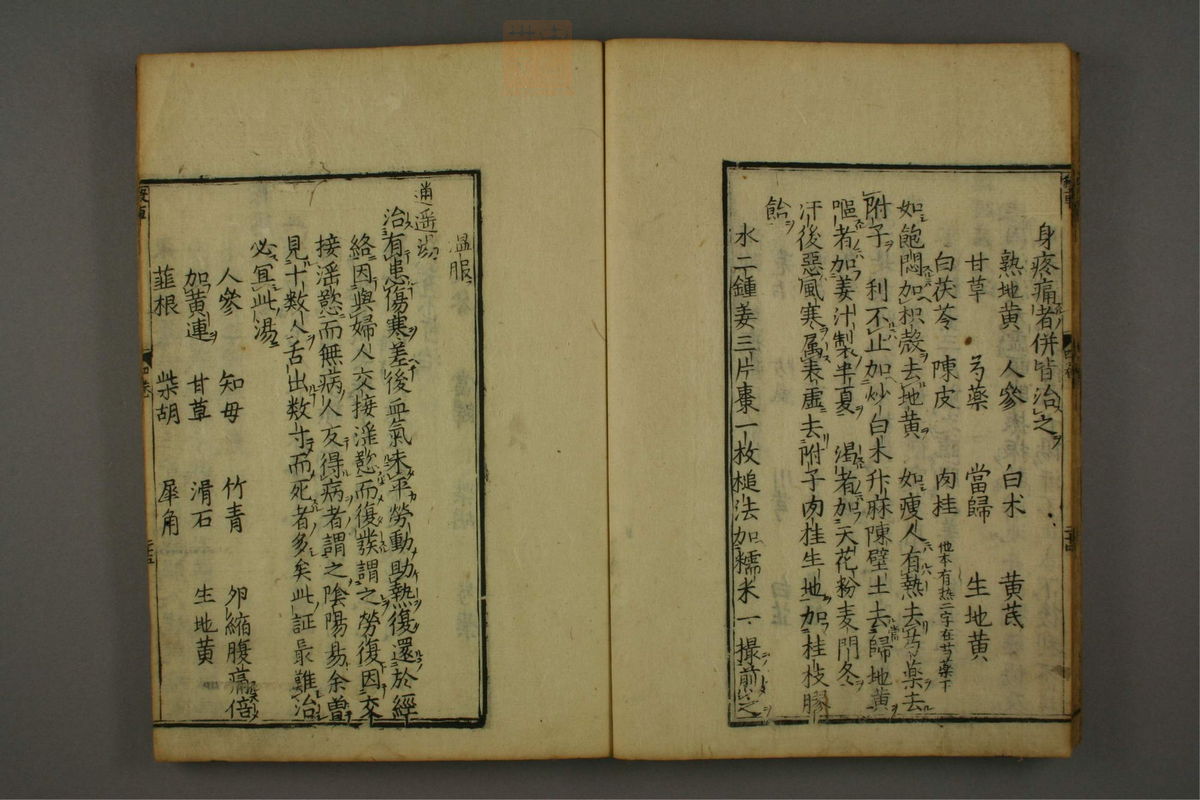 身疼痛者併皆治之
熟地黄 人參 白术 黄芪
甘草 芍藥 當歸 生地黄
白茯苓 陳皮 肉桂 他本有熱二字在芍藥下
如飽悶加枳殼去地黄 如瘦人有熱去芍藥去
附子 利不止加炒白术升麻陳壁土去歸地黄
嘔者加姜汁製半夏 渴者加天花粉麦門冬
汗後惡風寒属表虚去附子肉桂生地加桂枝膠
飴
水二鍾姜三片棗一枚槌法加糯米一撮煎之
温服
逍遥湯
治有患傷寒差後血氣未平勞動助熱復還於經
絡因與婦人交接滛慾而復發謂之勞復因交
接滛慾而無病人反得病者謂之陰陽易余曽
見十数人舌出数寸而死者多矣此証最難治
必冝此湯
人參 知母 竹青 卵縮腹痛倍
加黄連 甘草 滑石 生地黄
韮根 柴胡 犀角